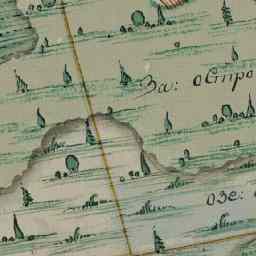 За: остро
озе: